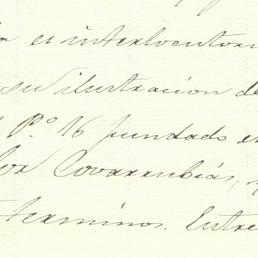 es interlocutori
su ilustración de
P.º 16 fundado e
por Covarrubias,
terminos. Entre